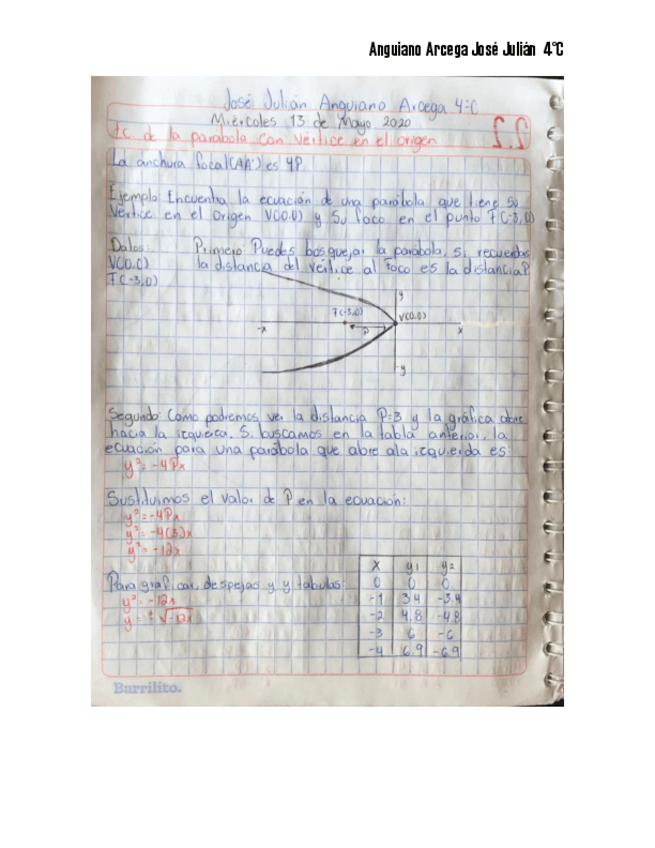 Anguiano Arcega José Julián 4°C
José Julián Anguiano Arcega 4°C
Miércoles 13 de Mayo 2020
Ec. de la parabola con vértice en el origen
2.2
La anchura focal(AA') es 4P.
Ejemplo: Encuentra la ecuación de una parábola que tiene su
Vértice en el Origen V(0,0) y Su foco en el punto F(-3,0)
Datos: Primero: Puedes bosquejar la parábola, si recuerdas
V(0,0) la distancia del vértice al foco es la distancia P
F(-3,0)
y
F(-3,0) V(0,0)
-x P x
-y
Segundo: Como podremos ver la distancia P=3 y la gráfica abre
hacia la izquierda. Si buscamos en la tabla anterior, la
ecuación para una parábola que abre ala izquierda es:
y²= -4Px
Sustituimos el valor de P en la ecuación:
y²=-4Px
y²= -4(3)x
y²= -12x
x y₁ y₂
Para graficar, despejas y y tabulas: 0 0 0
y²= -12x -1 3.4 -3.4
y= ±√-12x -2 4.8 -4.8
-3 6 -6
-4 6.9 -6.9
Barrilito.